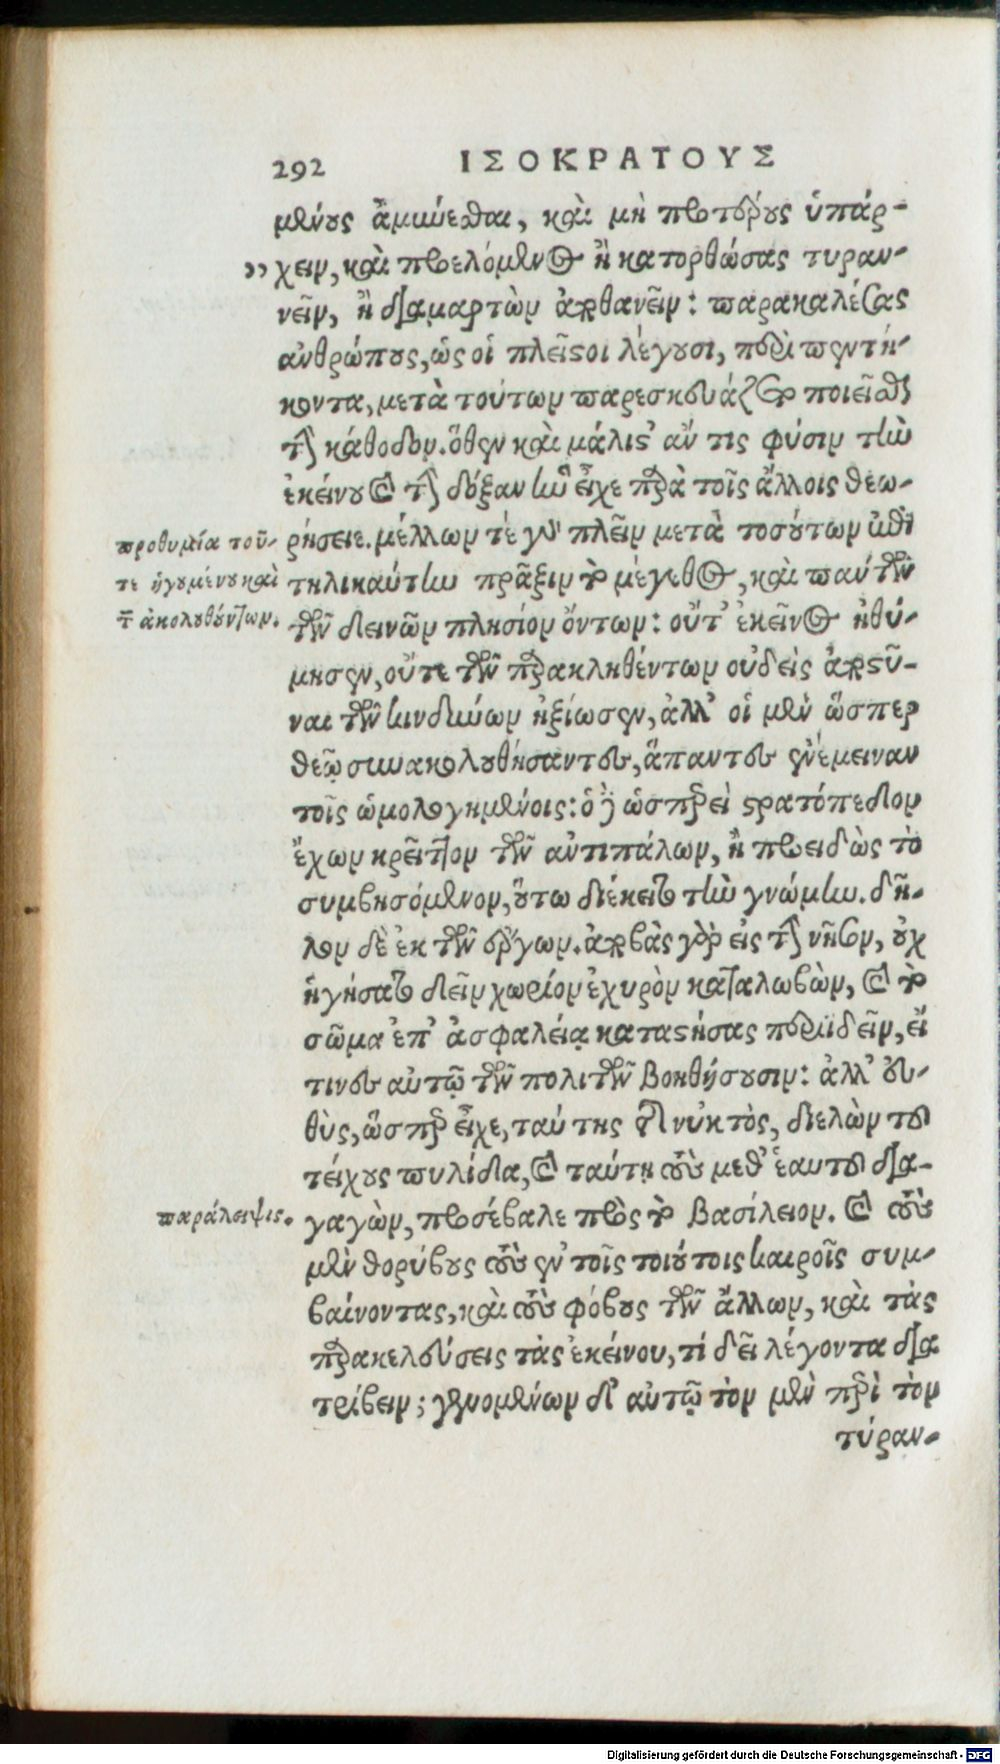 292 ΙΣΟΚΡΑΤΟΥΣ
μένους ἀμύνεσθαι, καὶ μὴ προτέρους ὑπάρ-
›› χειν, καὶ προελόμενος ἢ κατορθώσας τυραν-
νεῖν, ἢ διαμαρτὼν ἀποθανεῖν: παρακαλέσας
ἀνθρώπους, ὡς οἱ πλεῖστοι λέγουσι, περὶ πεντή-
κοντα, μετὰ τούτων παρεσκευάζετο ποιεῖσθαι
τὴν κάθοδον. ὅθεν καὶ μάλιστ' ἄν τις φύσιν τὴν
ἐκείνου καὶ τὴν δόξαν ἣν εἶχε παρὰ τοῖς ἄλλοις θεω-
προθυμία τοῦ- ρήσειε. μέλλων τέ γὰρ πλεῖν μετὰ τοσούτων ἐπὶ
τε ἡγουμένου καὶ τηλικαύτην πρᾶξιν τὸ μέγεθος, καὶ πάντων
τῶν ἀκολουθούντων. τῶν δεινῶν πλησίον ὄντων: οὔτ' ἐκεῖνος ἠθύ-
μησεν, οὔτε τῶν παρακληθέντων οὐδεὶς ἀποστῆ-
ναι τῶν κινδύνων ἠξίωσεν, ἀλλ' οἱ μὲν ὥσπερ
θεῷ συνακολουθήσαντες, ἅπαντες ἐνέμειναν
τοῖς ὡμολογημένοις: ὁ δὲ ὡσπερεὶ στρατόπεδον
ἔχων κρεῖττον τῶν ἀντιπάλων, ἢ προειδὼς τὸ
συμβησόμενον, οὕτω διέκειτο τὴν γνώμην. δῆ-
λον δὲ ἐκ τῶν ἔργων. ἀποβὰς γὰρ εἰς τὴν νῆσον, οὐχ
ἡγήσατο δεῖν χωρίον ἐχυρὸν καταλαβὼν, καὶ τὸ
σῶμα ἐπ' ἀσφαλείᾳ καταστήσας περιϊδεῖν, εἴ
τινες αὐτῷ τῶν πολιτῶν βοηθήσουσιν: ἀλλ' εὐ-
θὺς, ὥσπερ εἶχε, ταύτης τῆς νυκτὸς, διελὼν τοῦ
τείχους πυλίδια, καὶ ταύτῃ τοὺς μεθ' ἑαυτοῦ δια-
παράλειψις. γαγὼν, προσέβαλε πρὸς τὸ βασίλειον. καὶ τοὺς
μὲν θορύβους τοὺς ἐν τοῖς τοιούτοις καιροῖς συμ-
βαίνοντας, καὶ τοὺς φόβους τῶν ἄλλων, καὶ τὰς
παρακελεύσεις τὰς ἐκείνου, τί δεῖ λέγοντα δια
τρίβειν; γενομένων δ' αὐτῷ τὸν μὲν περὶ τὸν
τύραν-
Digitalisierung gefördert durch die Deutsche Forschungsgemeinschaft - DFG